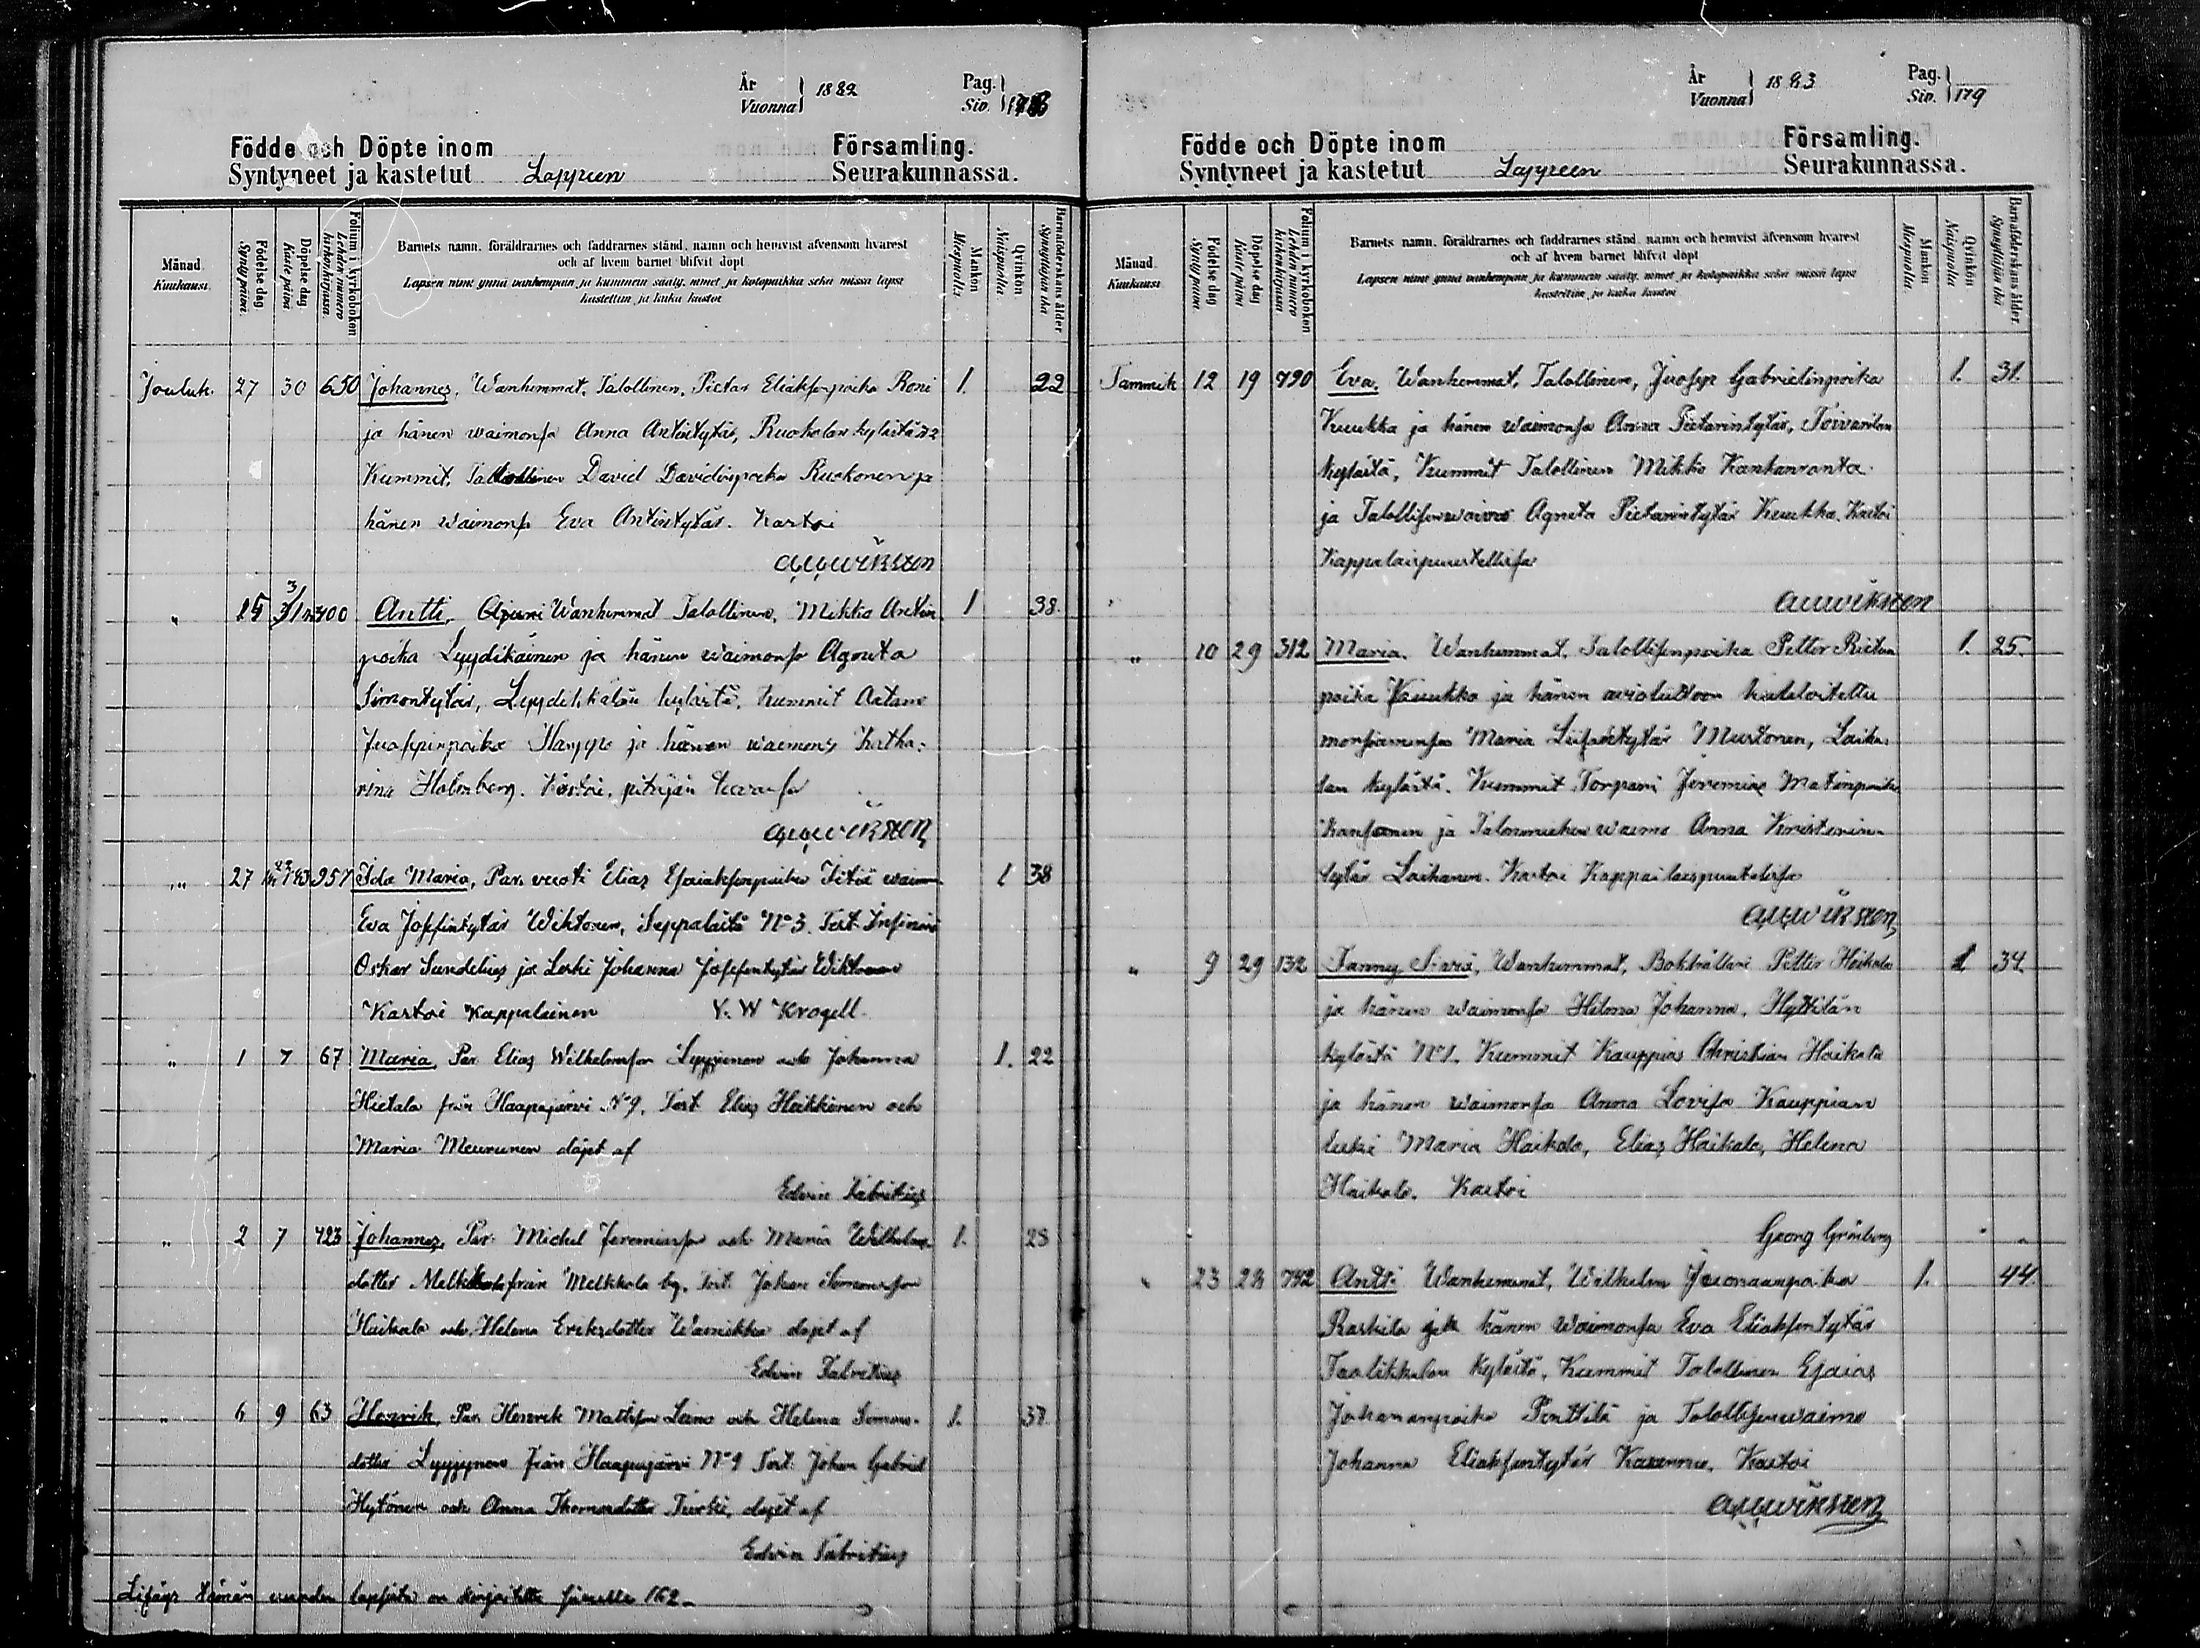 År
Vuonna
1882
Pag.
Siv.
178
Födde och Döpte inom Församling.
Syntyneet ja kastetut Lappeen Seurakunnassa.
Månad. Kuukausi.
Födelse dag Synty päivä.
Döpelse dag Kaste päivä
Folium i kyrkoboken Lehden numero kirkonkirjassa.
Barnets namn, föräldrarnes och faddrarnes stånd, namn och hemvist äfvensom hvarest
och af hvem barnet blifvit döpt
Lapsen nimi ynnä vanhempain ja kummein sääty, nimet ja kotopaikka sekä missä lapsi
kastettiin ja kuka kastoi
Mankön Miespuolia
Qvinkön Naispuolia.
Barnaföderskans ålder Synnyttäjän ikä
Jouluk. 27 30 650 Johannes, Wanhemmat, Talollinen, Pietar Eliaksenpoika Roni 1. 22
ja hänen waimonsa Anna Antintytär, Ruoholan kylästä №2
Kummit, Talollinen David Davidinpoika Ruokonen ja
hänen waimonsa Eva Antintytär. Kastoi
" 15 3/1 400 Antti, Wanhemmat Talollinen, Mikko Antin 1 38.
poika Lyydikäinen ja hänen waimonsa Agneta
Simontytär, Lyydikkälän kylästä, Kummit Aatami
Juosppinpoika Happo ja hänen waimonsa Katha-
rina Holmberg. Kastoi, pitäjän
" 27 951 Ida Maria, Par. vuoti Elias Esaiaksenpoika waimo 1 38
Eva Joseffintytär Wiktoren, №3. Test. Insinöri
Oskar Sundelius ja Leski Johanna Joseffintytär Wiktoren
Kastoi Kappalainen K. W Krogell.
" 1 7 67 Maria, Par. Elias Wilhelmsson Lyyjynen och Johanna 1. 22
Hietala från Haapajärvi №9. Test. Elias Heikkinen och
Maria Meurunen döpt af
Edvin Fabritius
" 2 7 423 Johannes, Par. Michel Jeremiasson och Maria Wilhelms- 1. 28
dotter Melkkola från Melkkola by. Test. Johan Simonsson
Haikala och Helena Eriksdotter Wainikka döpt af
Edvin Fabritius
" 6 9 63 Henrik, Par. Henrik Mattsson Leino och Helena Simons- 1. 37
dotter Lyyjynen från Haapajärvi №9 Test. Johan Gabriel
Hytönen och Anna Thomasdotter Turki, döpt af
Edvin Fabritius
Lisäys tämän vuoden lapsista on kirjoitettu sivulle 162.
År
Vuonna
1883
Pag.
Siv.
179
Födde och Döpte inom Församling.
Syntyneet ja kastetut Lappeen Seurakunnassa.
Månad. Kuukausi
Födelse dag Synty päivä.
Döpelse dag Kaste päivä
Folium i kyrkoboken Lehden numero kirkonkirjassa.
Barnets namn, föräldrarnes och faddrarnes stånd, namn och hemvist äfvensom hvarest
och af hvem barnet blifvit döpt
Lapsen nimi ynnä vanhempain ja kummein sääty, nimet ja kotopaikka sekä missä lapsi
kastettiin ja kuka kastoi
Mankön Miespuolia.
Qvinkön Naispuolia
Barnaföderskans ålder. Synnyttäjän ikä
Tammik 12 19 790 Eva, Wanhemmat, Talollinen, Juosep Gabrielinpoika 1. 31.
Kuukka ja hänen waimonsa Anna Pietarintytär, Toivarilan
kylästä, Kummit Talollinen Mikko Kankanranta
ja Talollisenwaimo Agneta Pietarintytär Kuukka. Kastoi
Kappalaispuustellissa
" 10 29 312 Maria, Wanhemmat, Talollisenpoika Petter
poika Kuukka ja hänen avioliittoon kuuloitettu
morsiamensa Maria Murtonen, Laiha-
lan kylästä. Kummit Torpari Jeremias Matinpoika
Kansanen ja Talonmiehen waimo Anna Kristerin-
tytär Laihanen. Kastoi Kappalaispuustellissa
1. 25.
" 9 29 132 Fanny Siviä, Wanhemmat, Bokhållari Petter Haikala 1 34
ja hänen waimonsa Hilma Johanna, Hyttilän
kylästä №1. Kummit Kauppias Christian Haikala
ja hänen waimonsa Anna Lovisa Kauppian
leski Maria Haikala, Elias Haikala, Helena
Haikala. Kastoi
Georg Grönberg
" 23 28 742 Antti Wanhemmat, Wilhelm Juonaanpoika 1. 44.
Raskila ja hänen waimonsa Eva Eliaksentytär
Taalikkalan kylästä, Kummit Talollinen Esaias
Johananpoika Penttilä ja Talollisenwaimo
Johanna Eliaksentytär Kastoi